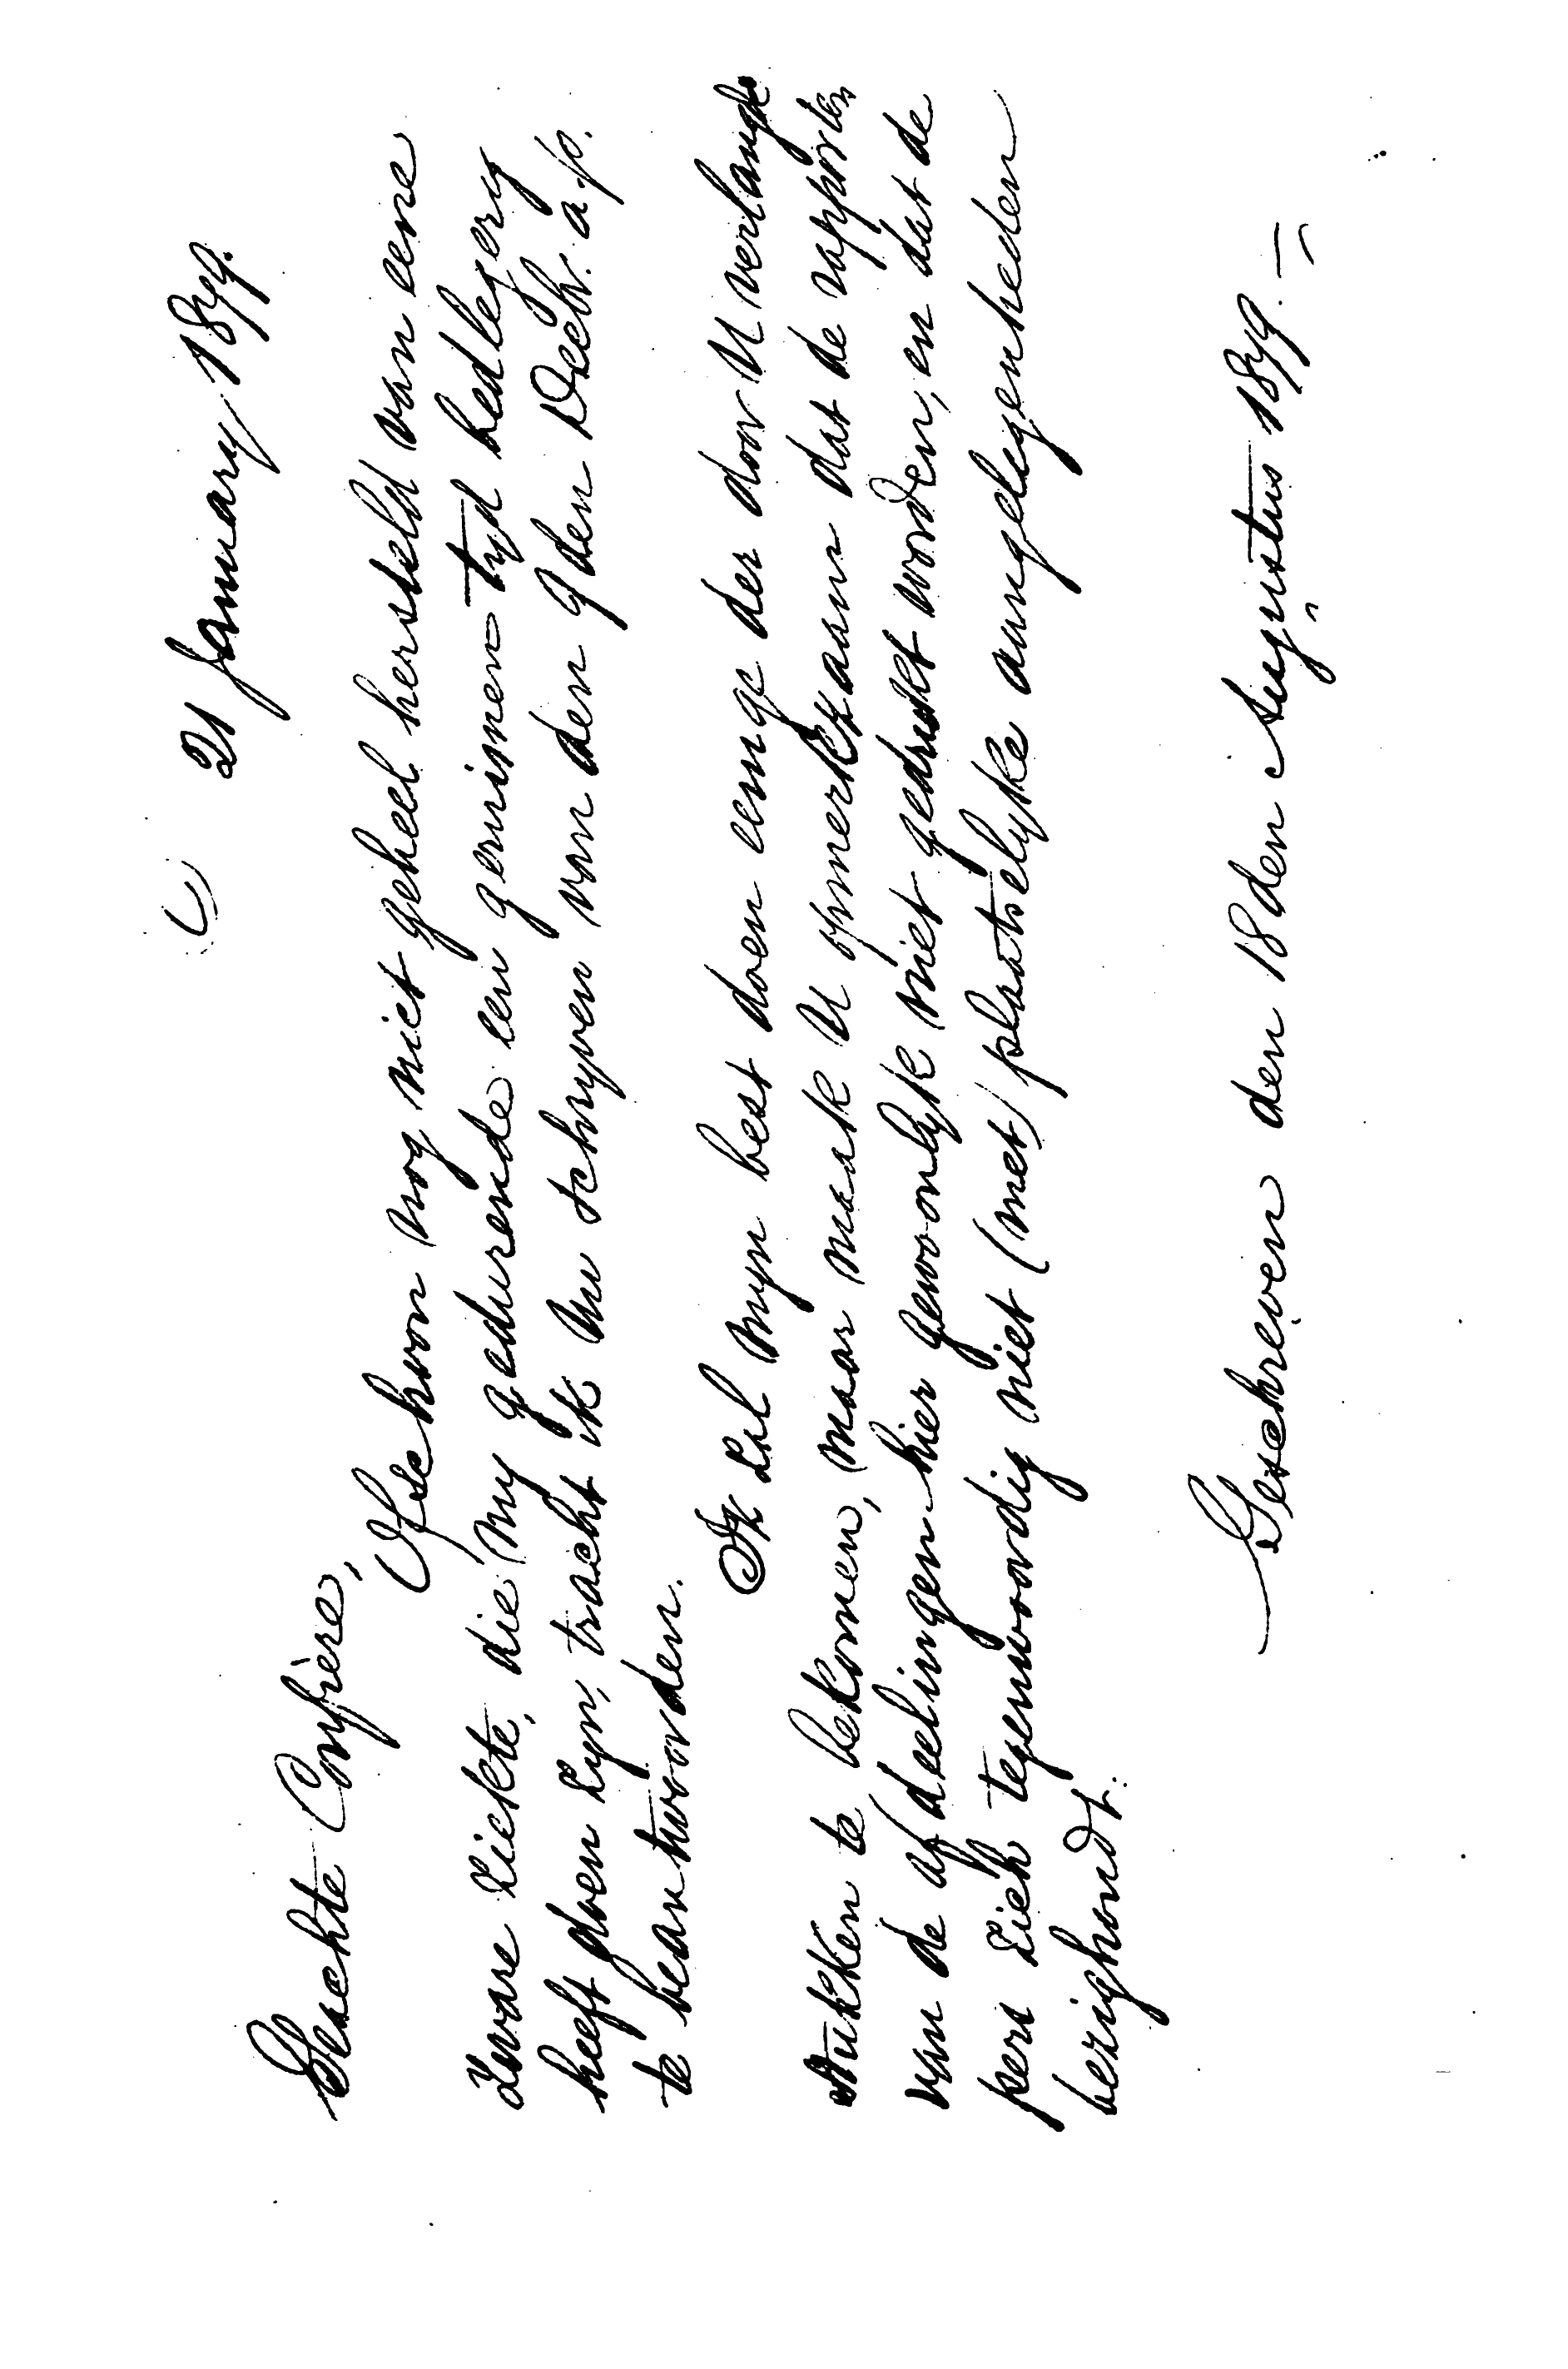 21 January 1879.
Geachte Confrère,
Ofschoon nog niet geheel hersteld van eene
zware ziekte, die my gedurende een geruimen tyd bedlegerig
heeft doen zyn, tracht ik Uw schryven van den 9den Decbr. a.p.
te beantwoorden.
Ik zal myn best doen eenige der door U verlangde
stukken te bekomen, maar maak U opmerkzaam dat de rapporten
van de afdeelingen hier gewoonlyk niet gedrukt worden, en dat de
pers zich tegenwoordig niet (met) plaatselyke aangelegenheden
bezighoudt.
Geschreven den 18den Augustus 1879. –